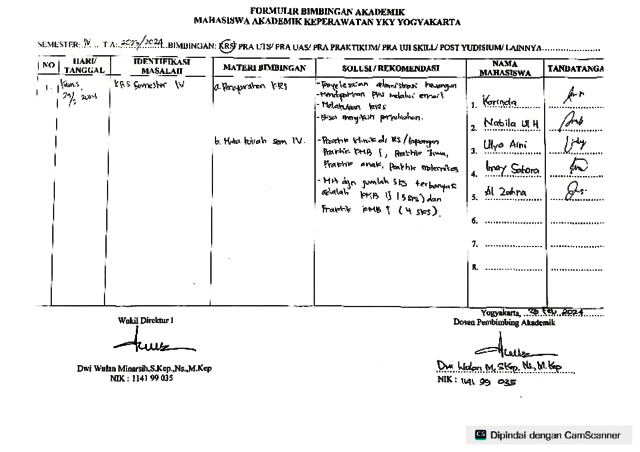 FORMULIR BIMBINGAN AKADEMIK
MAHASISWA AKADEMIK KEPERAWATAN YKY YOGYAKARTA
SEMESTER: IV T.A: 2023/2024 BIMBINGAN: KRS/ PRA UTS/ PRA UAS/ PRA PRAKTIKUM/ PRA UJI SKILL/ POST YUDISIUM/ LAINNYA
NO HARI/ TANGGAL IDENTIFIKASI MASALAH MATERI BIMBINGAN SOLUSI / REKOMENDASI NAMA MAHASISWA TANDATANGA
1. Kamis, 2024
KRS Semester IV
a. Persyaratan KRS
- Penyelesaian administrasi keuangan
- Mendapatkan PIN melalui email
- Melakukan KRS
- Bisa mengikuti perkuliahan.
b. Mata kuliah sem IV.
- Praktik klinik di RS/lapangan
Praktik KMB I, Praktik Jiwa,
Praktik anak, Praktik maternitas
- MA dgn jumlah SKS terbanyak
adalah KMB II (3 SKS) dan
Praktik KMB I (4 SKS).
1. Karinda
2. Nabila U H
3. Ulya Aini
4. Imay Sahara
5. Al Zahra
6.
7.
8.
Yogyakarta, 26 Feb 2024
Wakil Direktur I
Dosen Pembimbing Akademik
Dwi Wulan Minarsih,S.Kep.,Ns.,M.Kep
NIK : 1141 99 035
Dwi Wulan M, S.Kep, Ns, M.Kep
NIK : 1141 99 035
CS Dipindai dengan CamScanner